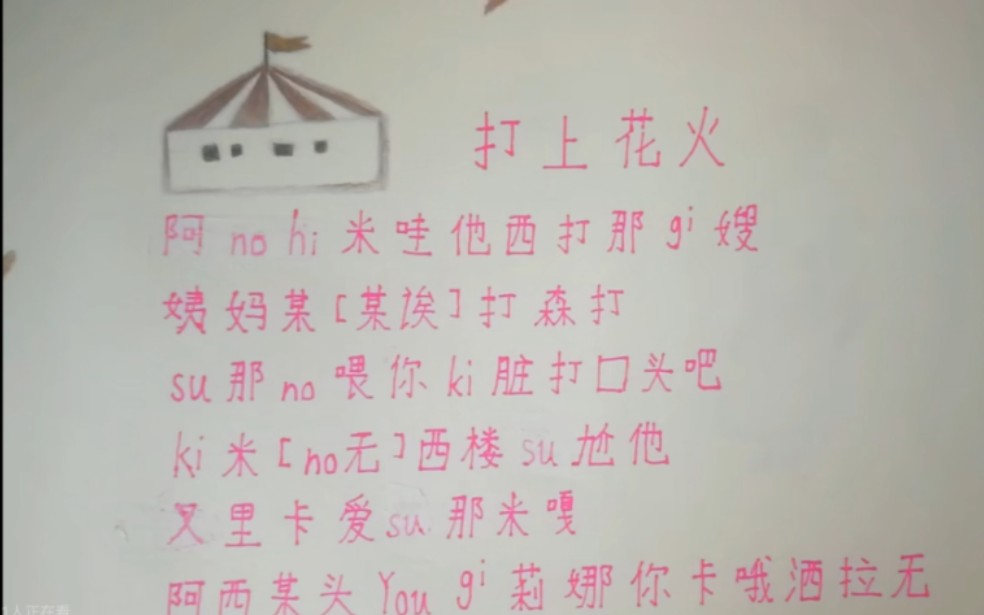 打上花火
阿 no hi 米哇他西打那 gi 嫂
姨妈某[某诶]打森打
su 那 no 喂你 ki 脏打口头吧
ki 米[no无]西楼 su 尬他
又里卡爱 su 那米嘎
阿西某头 You gi 莉娜你卡哦洒拉无
人正在看